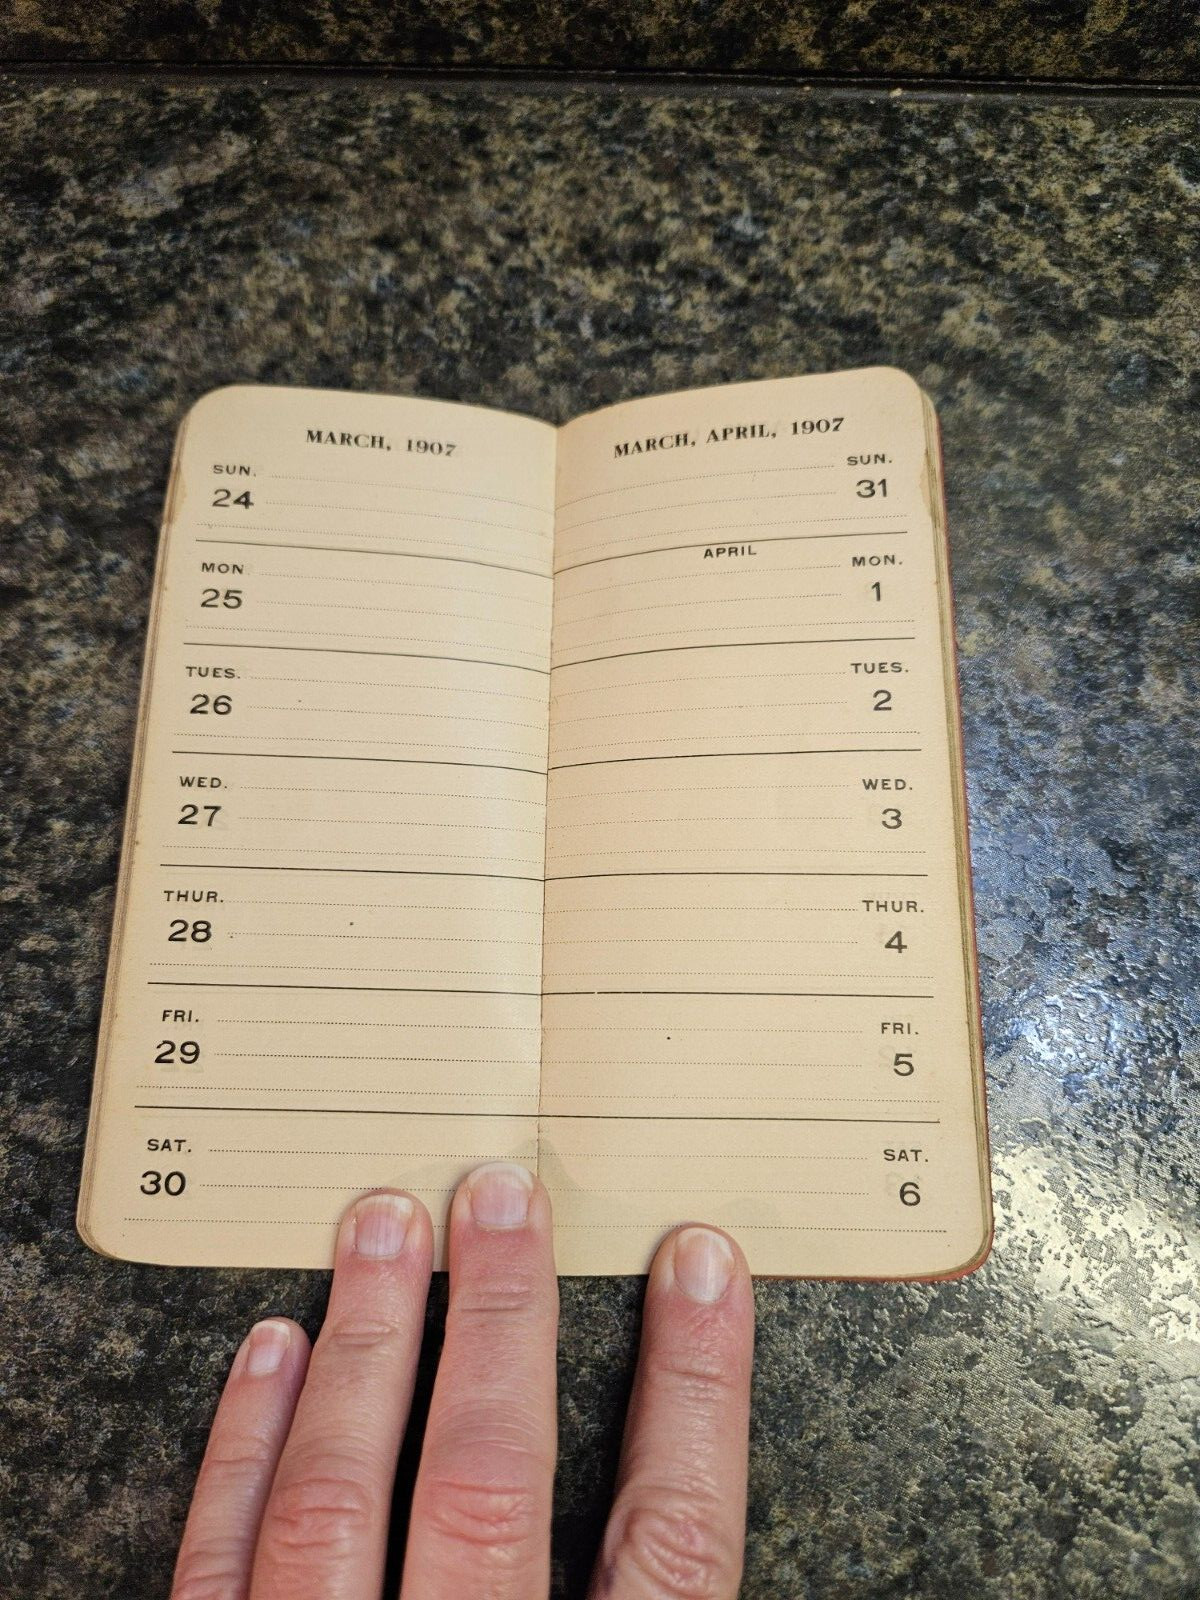 MARCH, 1907
SUN.
24
MON
25
TUES.
26
WED.
27
THUR.
28
FRI.
29
SAT.
30
MARCH, APRIL, 1907
SUN.
31
APRIL
MON.
1
TUES.
2
WED.
3
THUR.
4
FRI.
5
SAT.
6